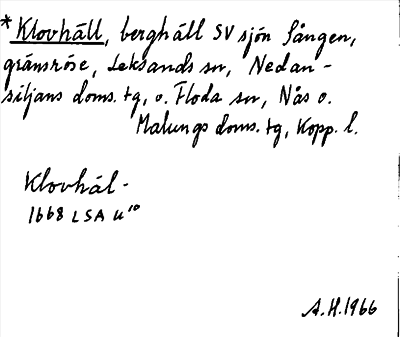 * Klovhäll, berghäll SV sjön Sången,
gränsröse, Leksands sn, Nedan-
siljans doms. tg, o. Floda sn, Nås o.
Malungs doms. tg, Kopp. l.
Klovhál-
1668 LSA U¹⁰
A.H. 1966